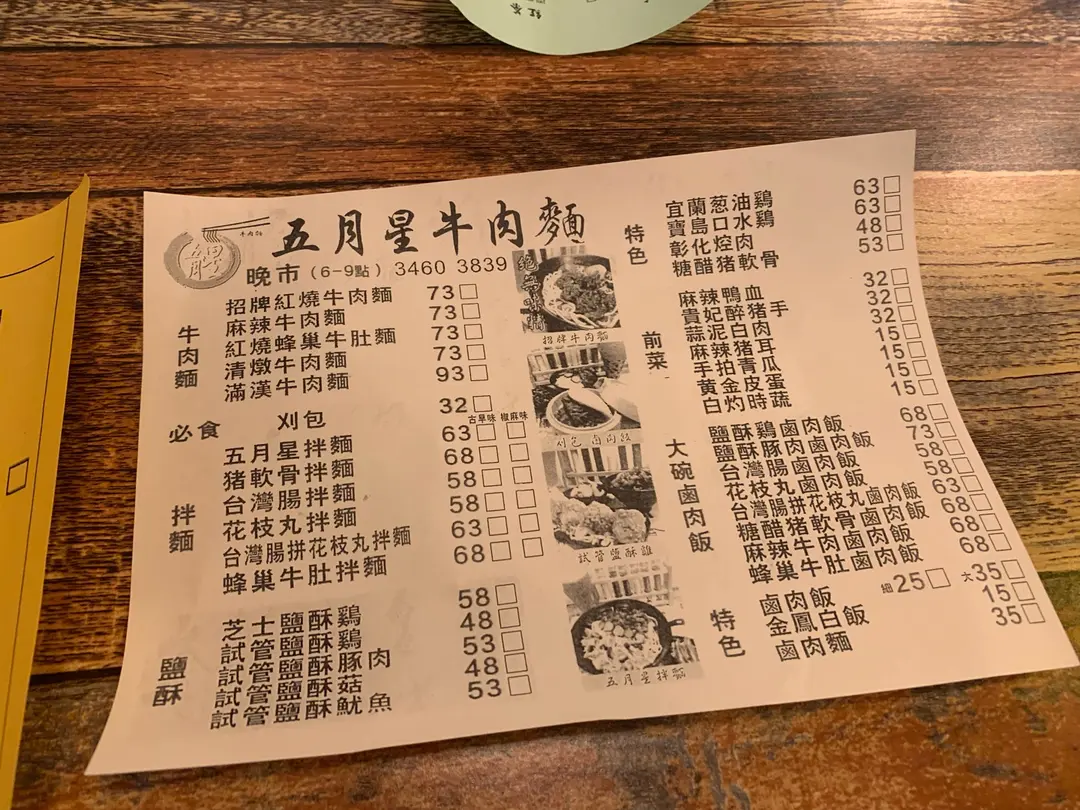 紅茶
五月星牛肉麵
晚市 (6-9點) 3460 3839
牛肉麵
招牌紅燒牛肉麵 73
麻辣牛肉麵 73
紅燒蜂巢牛肚麵 73
清燉牛肉麵 73
滿漢牛肉麵 93
必食 刈包 32
古早味 椒麻味
拌麵
五月星拌麵 63
猪軟骨拌麵 68
台灣腸拌麵 58
花枝丸拌麵 58
台灣腸拼花枝丸拌麵 63
蜂巢牛肚拌麵 68
鹽酥
芝士鹽酥鷄 58
試管鹽酥鷄 48
試管鹽酥豚肉 53
試管鹽酥菇 48
試管鹽酥魷魚 53
招牌牛肉麵
刈包 鹵肉飯
試管鹽酥雞
五月星拌麵
特色
宜蘭葱油鷄 63
寶島口水鷄 63
彰化焢肉 48
糖醋猪軟骨 53
前菜
麻辣鴨血 32
貴妃醉猪手 32
蒜泥白肉 32
麻辣猪耳 15
手拍青瓜 15
黄金皮蛋 15
白灼時蔬 15
大碗鹵肉飯
鹽酥鷄鹵肉飯 68
鹽酥豚肉鹵肉飯 73
台灣腸鹵肉飯 58
花枝丸鹵肉飯 58
台灣腸拼花枝丸鹵肉飯 63
糖醋猪軟骨鹵肉飯 68
麻辣牛肉鹵肉飯 68
蜂巢牛肚鹵肉飯 68
特色
鹵肉飯 細25 大35
金鳳白飯 15
鹵肉麵 35